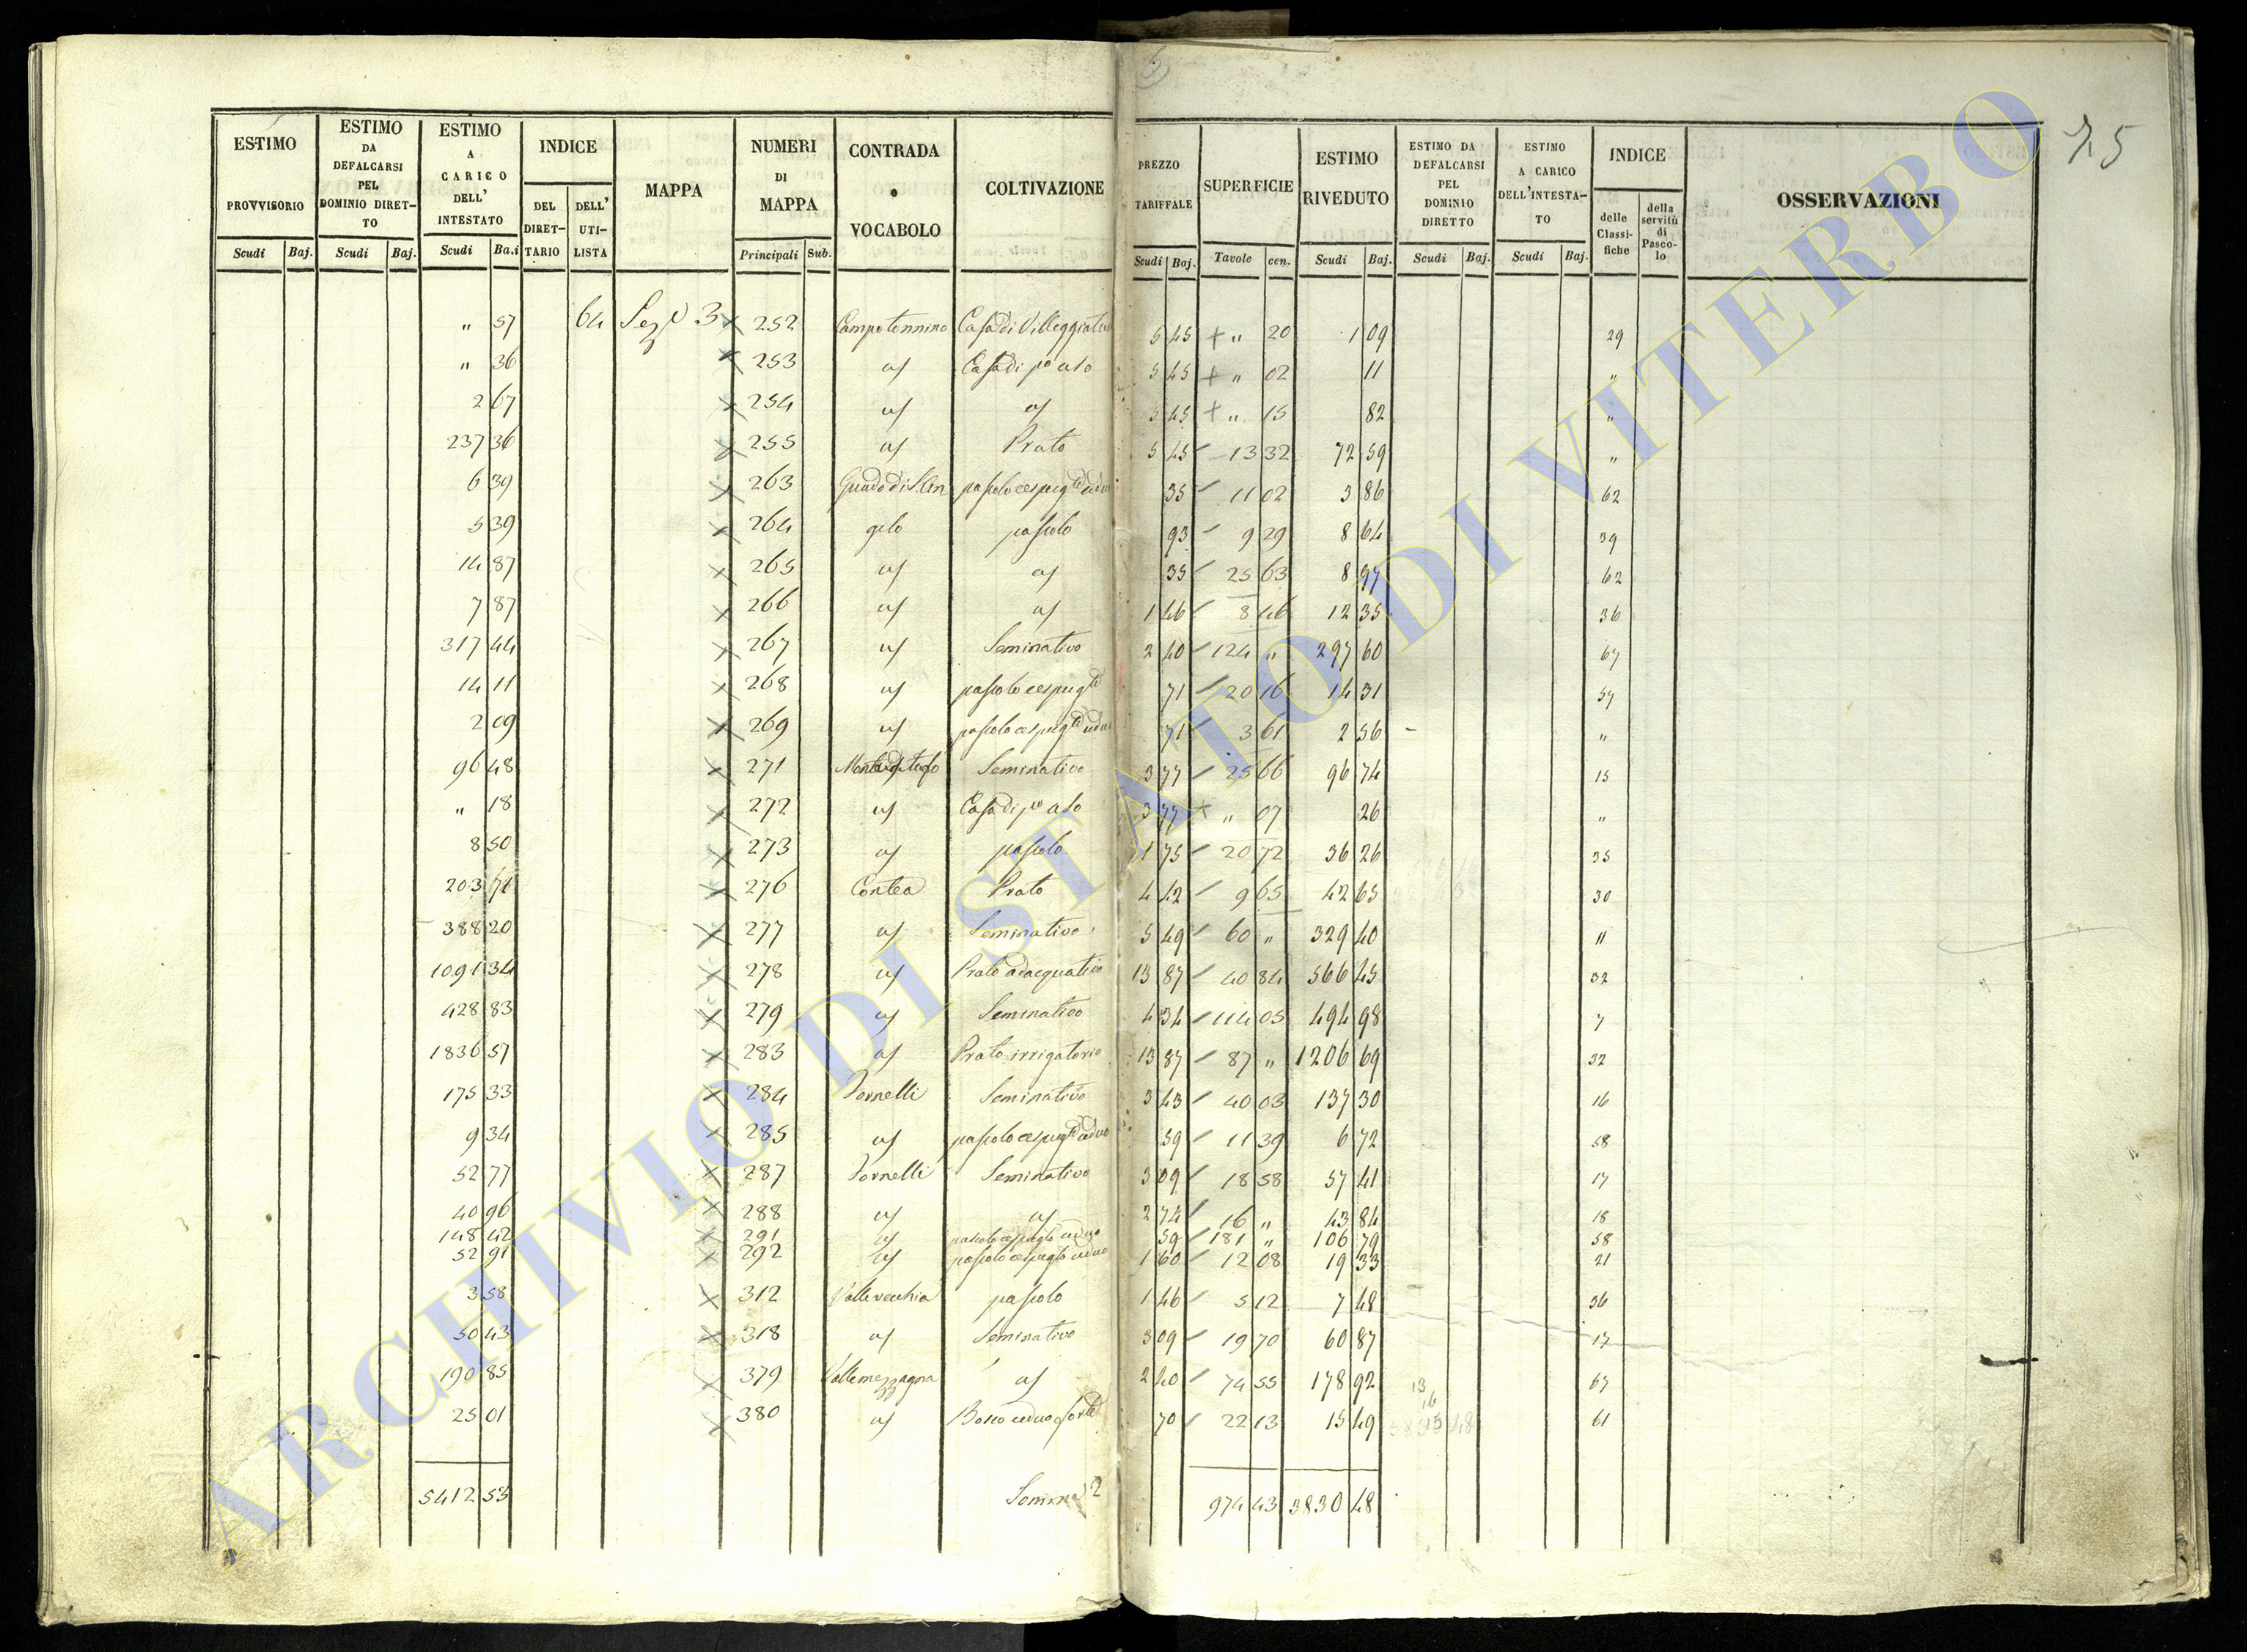 75
ESTIMO PROVVISORIO Scudi Baj.
ESTIMO DA DEFALCARSI PEL DOMINIO DIRET-TO Scudi Baj.
ESTIMO A CARICO DELL' INTESTATO Scudi Baj.
INDICE DEL DIRET-TARIO DELL' UTI-LISTA
MAPPA
NUMERI DI MAPPA Principali Sub.
CONTRADA o VOCABOLO
COLTIVAZIONE
PREZZO TARIFFALE Scudi Baj.
SUPERFICIE Tavole cen.
ESTIMO RIVEDUTO Scudi Baj.
ESTIMO DA DEFALCARSI PEL DOMINIO DIRETTO Scudi Baj.
ESTIMO A CARICO DELL'INTESTA-TO Scudi Baj.
INDICE delle Classi-fiche della servitù di Pasco-lo
OSSERVAZIONI
" 57 64 Sez 3 252 Casa di Villeggiatura 5 45 + " 20 1 09 29
" 36 253 Casa di po uso 5 45 + " 02 11 "
2 67 254 5 45 + " 15 82 "
237 36 255 Prato 5 45 13 32 72 59 "
6 39 263 35 11 02 3 86 62
5 39 264 pascolo 93 9 29 8 64 39
14 87 265 35 25 63 8 97 62
7 87 266 1 46 8 46 12 35 36
317 44 267 Seminativo 2 40 124 " 297 60 67
14 11 268 pascolo cespugto 71 20 16 14 31 57
2 09 269 pascolo cespugto ceduo 71 3 61 2 56 "
96 48 271 Seminativo 3 77 25 66 96 74 15
" 18 272 Casa di po uso 3 77 + " 07 26 "
8 50 273 pascolo 1 75 20 72 36 26 35
203 71 276 Contea Prato 4 42 9 65 42 65 30
388 20 277 Seminativo 5 49 60 " 329 40 "
1091 34 278 Prato adacquativo 13 87 40 84 566 45 32
428 83 279 Seminativo 4 34 114 05 494 98 7
1836 57 283 Prato irrigatorio 13 87 87 " 1206 69 32
175 33 284 Fornelli Seminativo 3 43 40 03 137 30 16
9 34 285 pascolo cespugto ceduo 59 11 39 6 72 58
52 77 287 Fornelli Seminativo 3 09 18 58 57 41 17
40 96 288 2 74 16 " 43 84 18
148 42 291 pascolo cespugto ceduo 59 181 " 106 79 58
52 91 292 pascolo cespugto ceduo 1 60 12 08 19 33 21
3 58 312 Valle vecchia pascolo 1 46 5 12 7 48 36
50 43 318 Seminativo 3 09 19 70 60 87 17
190 85 379 Valle mezzagna 2 40 74 55 178 92 67
25 01 380 Bosco ceduo forte 70 22 13 15 49 61
5412 53 Somma 974 43 3830 48
ARCHIVIO DI STATO DI VITERBO